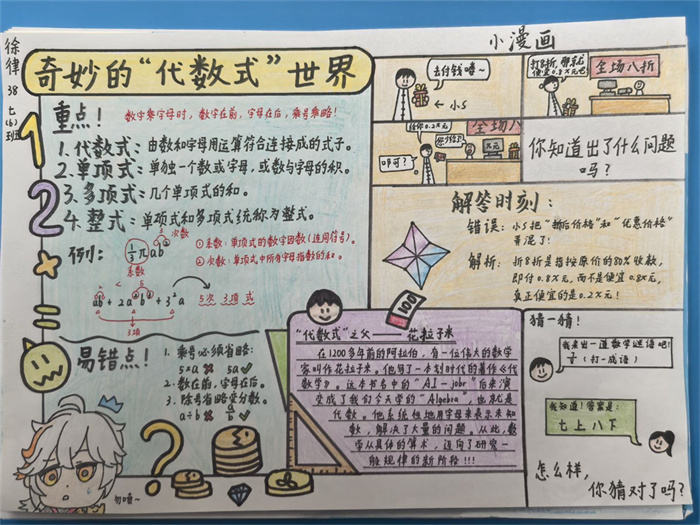 徐律 38 七(6)班
奇妙的“代数式”世界
重点！
数字乘字母时，数字在前，字母在后，乘号乘略！
1.代数式：由数和字母用运算符合连接成的式子。
2.单项式：单独一个数或字母，或数与字母的积。
3.多项式：几个单项式的和。
4.整式：单项式和多项式统称为整式。
例：
次数
系数
①系数：单项式的数字因数(连同符号)。
②次数：单项式中所有字母指数的和。
5次 3项 式
3项
易错点！
1. 乘号必须省略：
5×a ✘ 5a ✓
2. 数在前，字母在后。
3. 除号省略变分数。
a÷b ✘ a/b ✓
勿喷~
“代数式”之父——花拉子米
在1200多年前的阿拉伯，有一位伟大的数学
家叫作花拉子米。他写了一本划时代的著作《代
数学》。这本书名中的“AI-jabr”后来演
变成了我们今天学的“Algebra”也就是
代数。他系统性地用字母来表示未知
数，解决了大量的问题。从此，数
学从具体的算术，迈向了研究一
般规律的新阶段！！！
100
小漫画
去付钱喽~
小S
打8折，那就
便宜0.8x元吧
全场八折
给你0.2x元
全场八
x元
叩可？
你知道出了什么问题
吗？
解答时刻：
错误：小S把“折后价格”和“优惠价格”
弄混了！
解析：折8折是指按原价的80%收款，
即付0.8x元，而不是便宜0.8x元，
真正便宜的是0.2x元！
猜一猜！
我来出一道数学谜语吧！
(打一成语)
我知道！答案是：
七上八下
怎么样，
你猜对了吗？